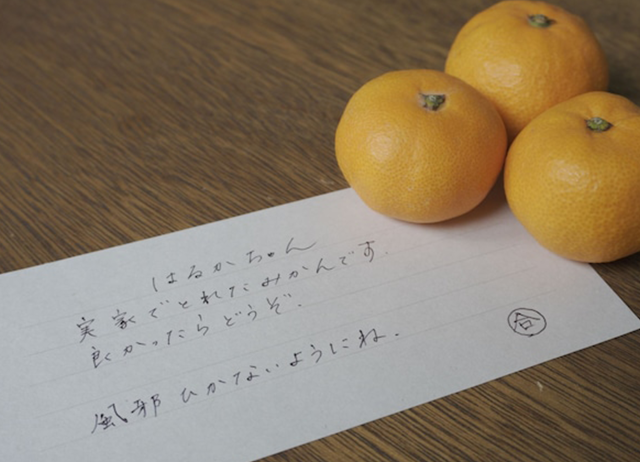 はるかちゃん
実家でとれたみかんです.
良かったらどうぞ.
風邪ひかないようにね.
合